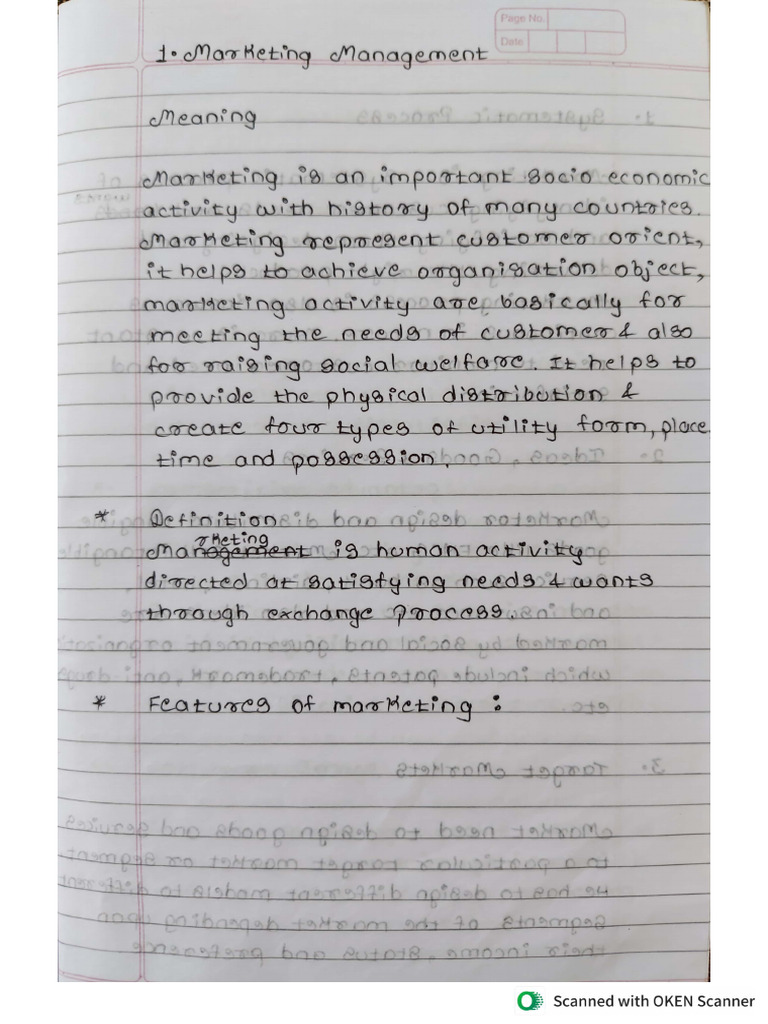 Page No.
Date
1. Marketing Management
Meaning
Marketing is an important socio economic
activity with history of many countries.
Marketing represent customer orient,
it helps to achieve organisation object,
marketing activity are basically for
meeting the needs of customer & also
for raising social welfare. It helps to
provide the physical distribution &
create four types of utility form, place
time and possession.
* Definition
rketing
Management is human activity
directed at satisfying needs & wants
through exchange process.
* Features of marketing :
Scanned with OKEN Scanner